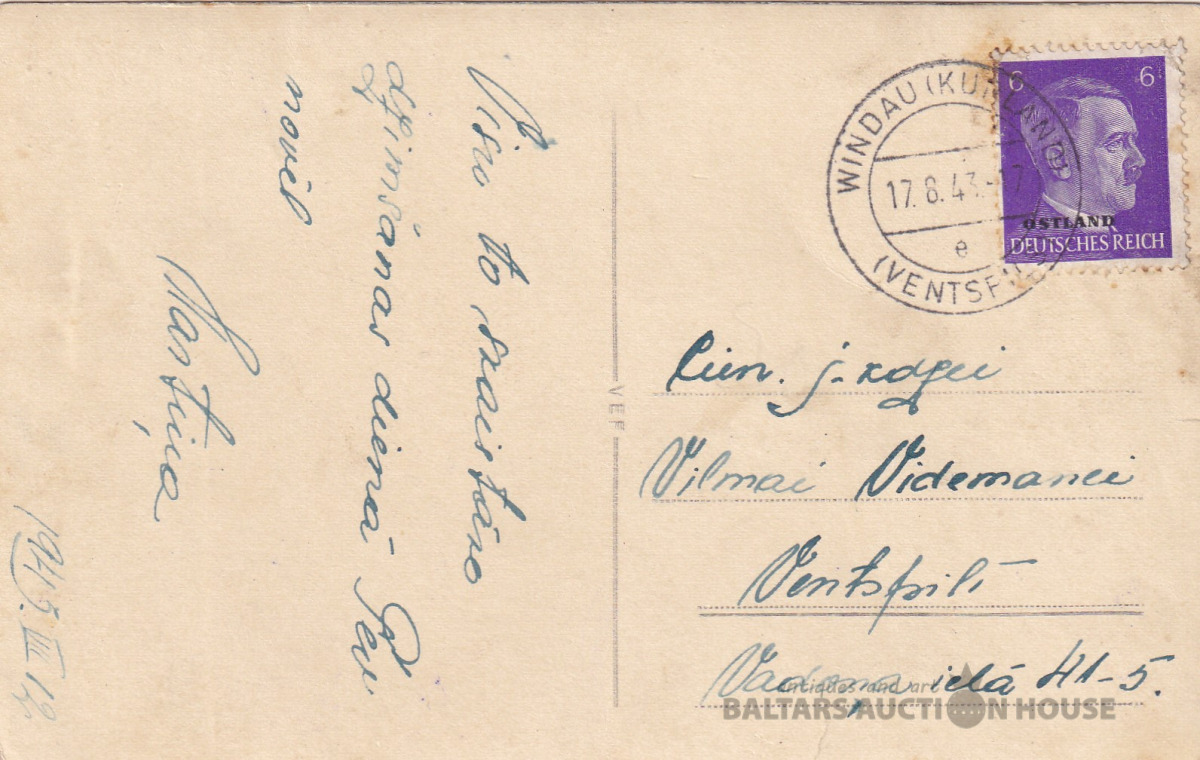 Visu to skaistāko
dzimšanas dienā Tev
novēl
Martiņa
1943. VIII 12
VEF
WINDAU (KURLAND)
17.8.43.-17
e
(VENTSPILS)
6 6
OSTLAND
DEUTSCHES REICH
Cien. j-kdzei
Vilmai Videmanei
Ventspilī
ielā 41-5.
antiques and art
BALTARS AUCTION HOUSE